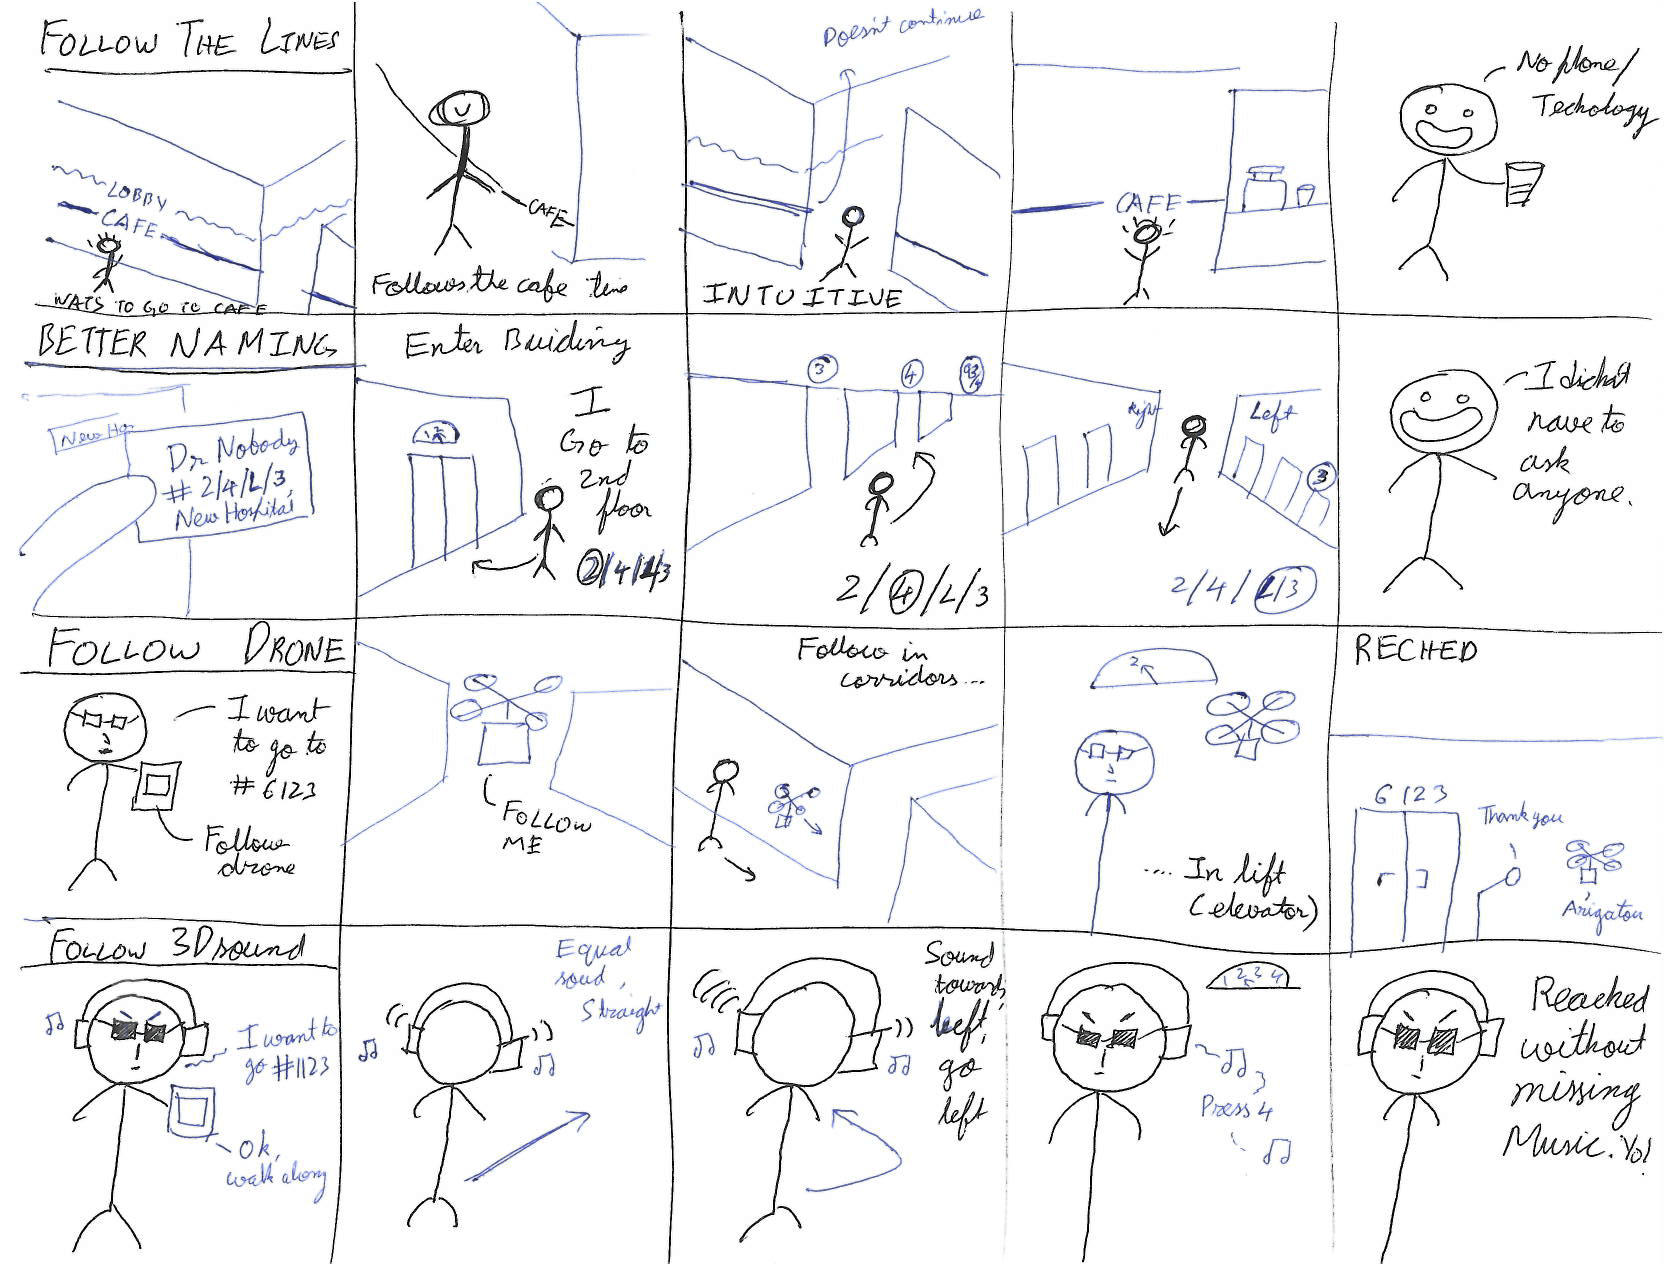 FOLLOW THE LINES
LOBBY
CAFE
WATS TO GO TO CAFE
CAFE
Follows the cafe line
Doesn't continue
INTUITIVE
CAFE
No phone/
Techology
BETTER NAMING
New Ho
Dr Nobody
# 2/4/L/3,
New Hospital
Enter Buiding
2
I
Go to
2nd
floor
2/4/L/3
3
4
2/4/L/3
Right
Left
3
2/4/L/3
I didn't
have to
ask
anyone.
FOLLOW DRONE
I want
to go to
# 6123
Follow
drone
FOLLOW
ME
Follow in
corridors...
2
.... In lift
(elevator)
RECHED
6123
Thank you
Arigatou
FOLLOW 3D sound
I want to
go #1123
Ok,
walk along
Equal
soud,
Straight
Sound
towards
left,
go
left
1 2 3 4
Press 4
Reached
without
missing
Music. Yo!